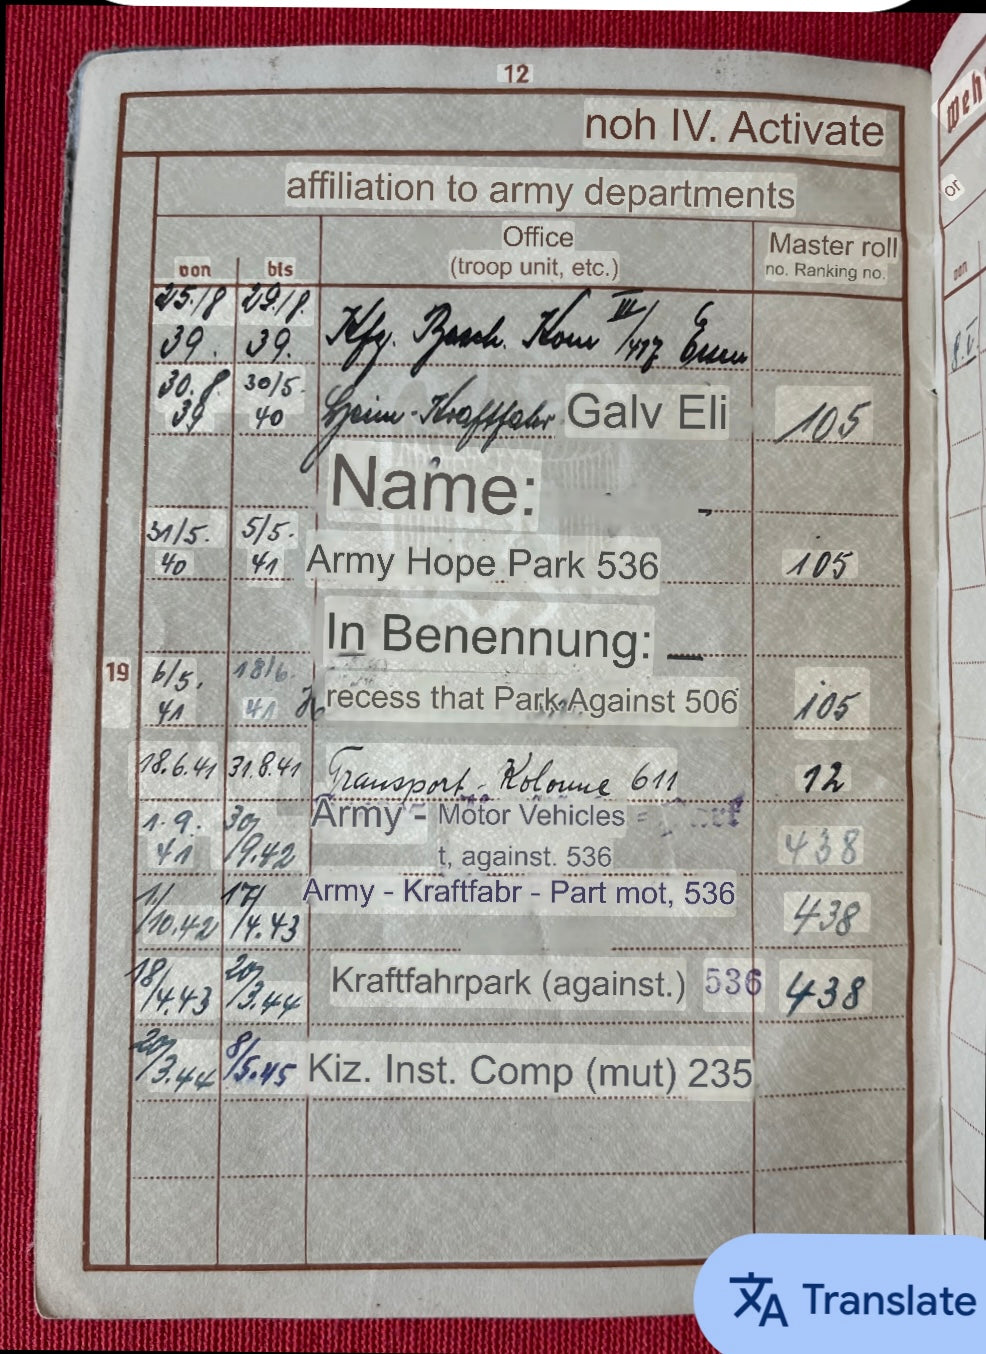 12
noh IV. Activate
affiliation to army departments
weh
or
Office
Master roll
von bis (troop unit, etc.) no. Ranking no.
von
25./8 29./8.
39. 39. Kfz. Besch. Kom III/417
30.8. 30/5.
39 40 Heim-Kraftfahr Galv Eli 105
Name:
31/5. 5/5.
40 41 Army Hope Park 536 105
In Benennung:
19 6/5. 18/6.
41 41 recess that Park Against 506 105
18.6.41 31.8.41 Transport-Kolonne 611 12
1.9. 30/ Army - Motor Vehicles =
41 /9.42 t, against. 536 438
1/ 17/ Army - Kraftfabr - Part mot, 536
/10.42 /4.43 438
18/ 20/ Kraftfahrpark (against.) 536 438
/4.43 /3.44
20/ 8/ Kiz. Inst. Comp (mut) 235
/3.44 /5.45
Translate